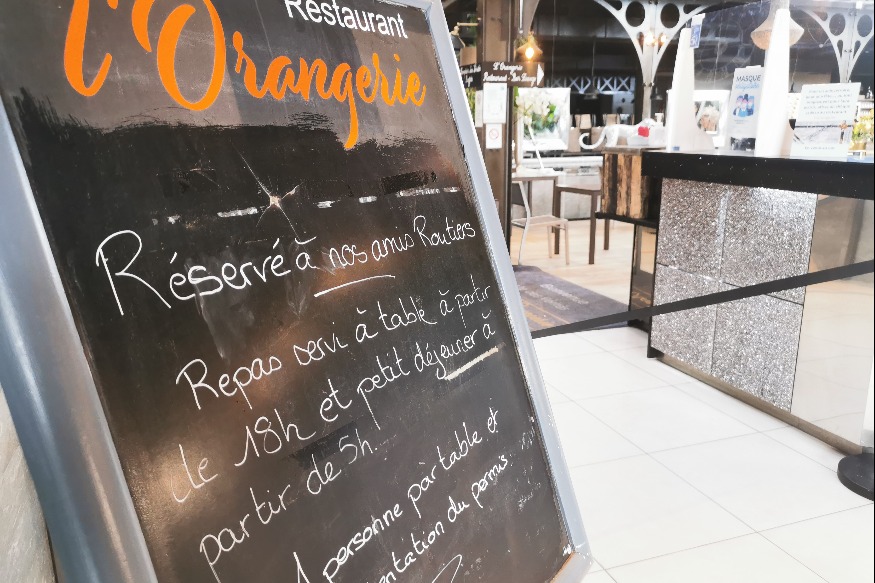 Restaurant
l'Orangerie
Réservé à nos amis Routiers
Repas servi à table à partir
de 18h et petit déjeuner à
partir de 5h.
1 personne par table et
entation du permis
MASQUE